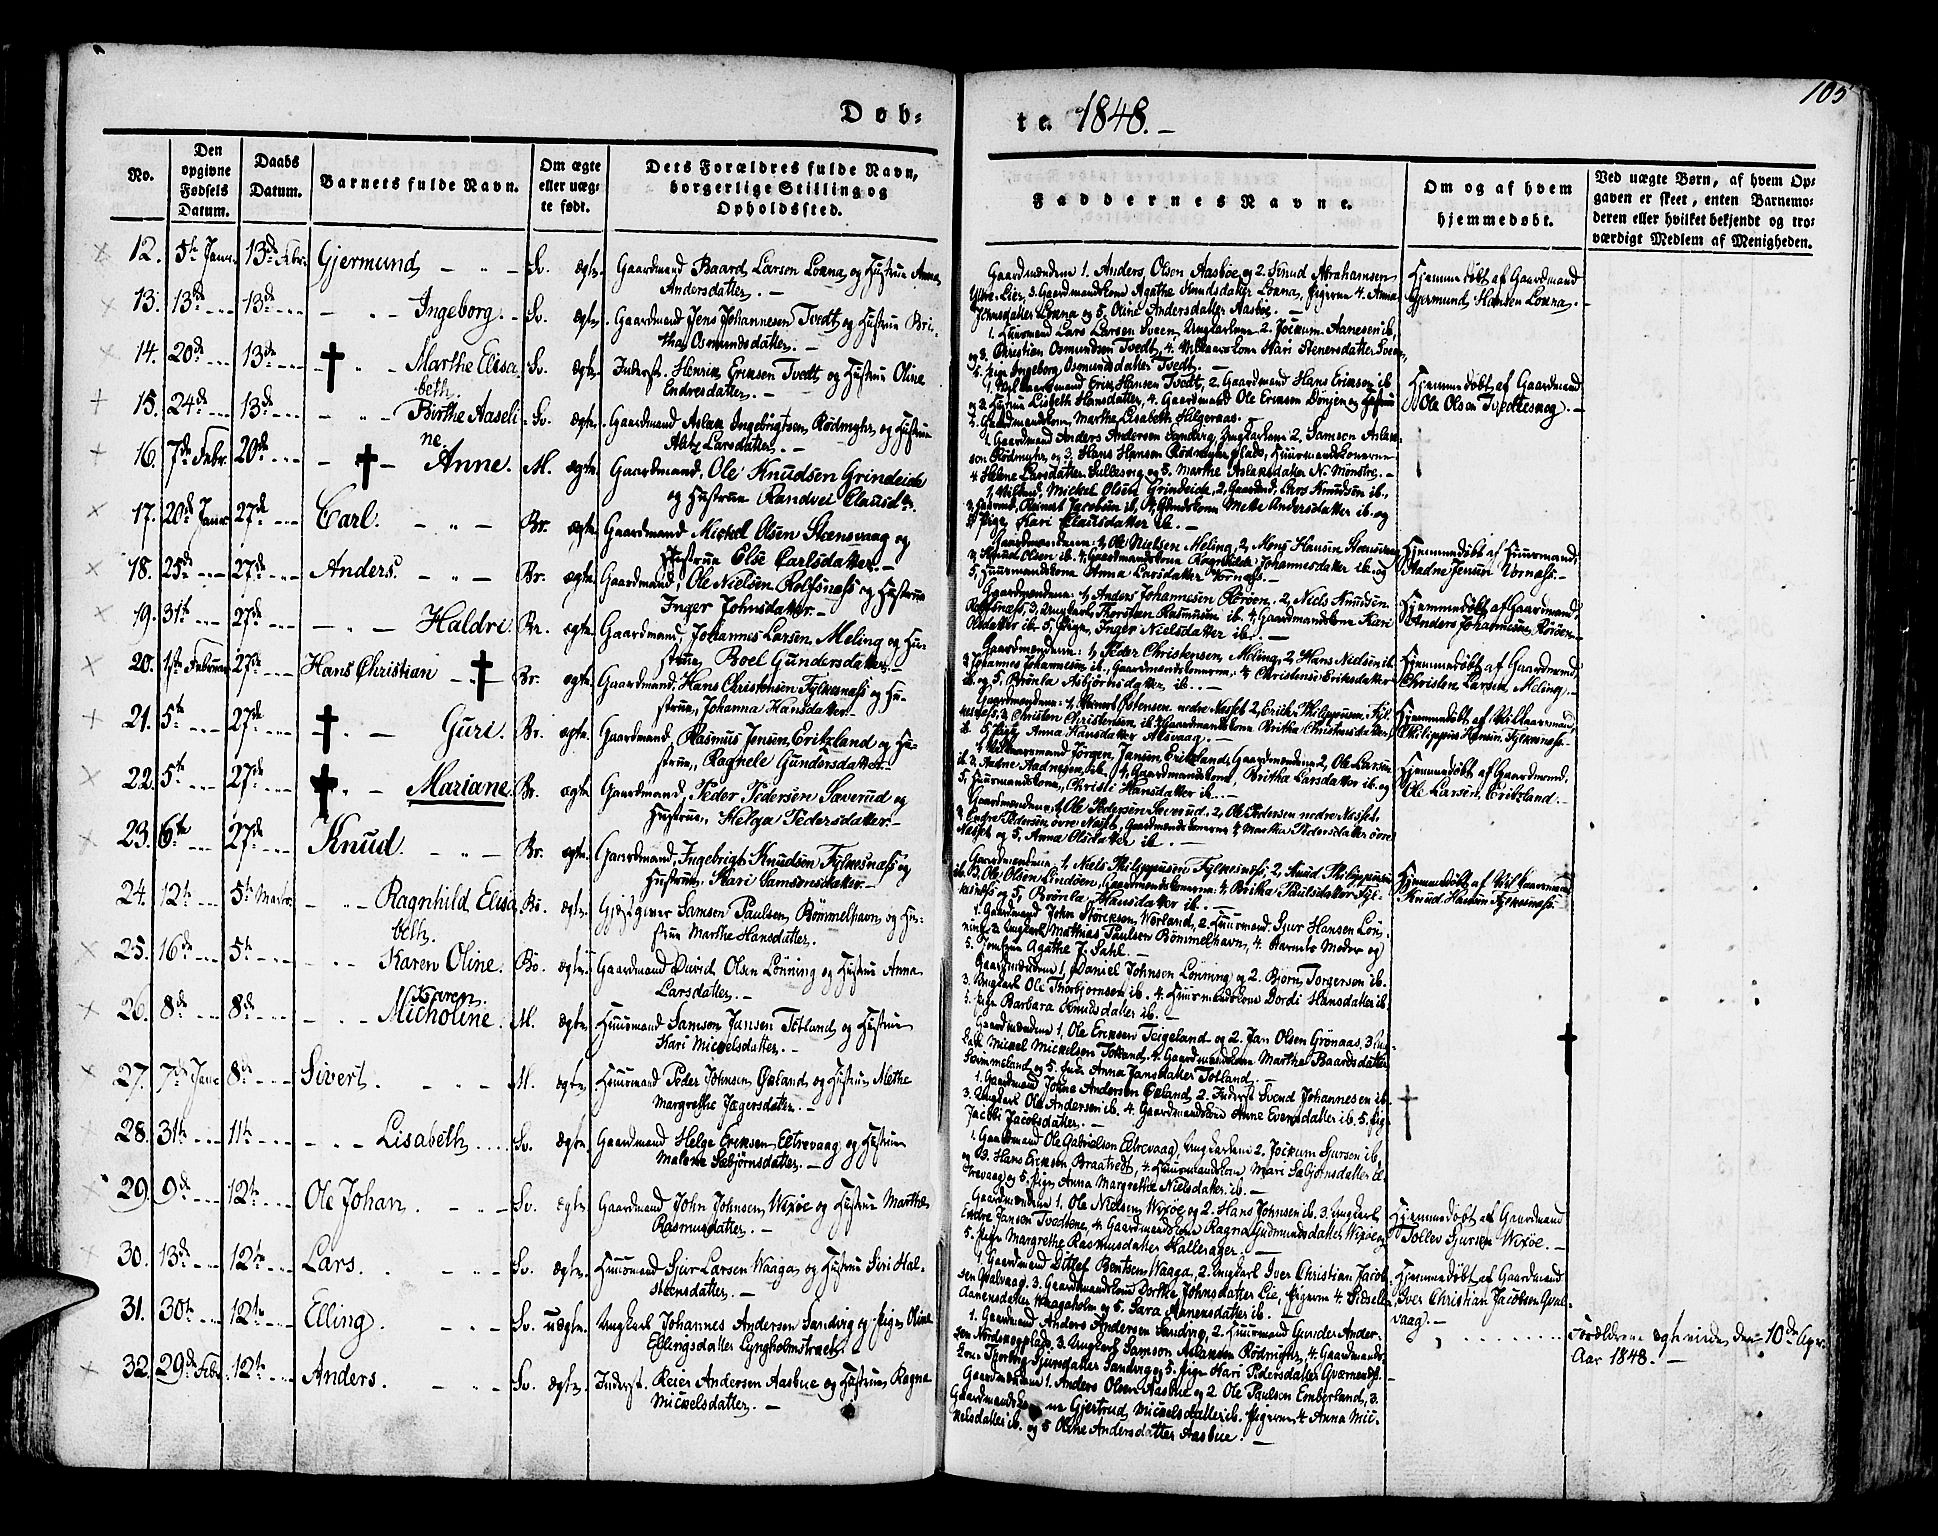 105
Døb-
te 1848.
No.
Den opgivne Fødsels Datum.
Daabs Datum.
Barnets fulde Navn.
Om ægte eller uæg-te født.
Dets Forældres fulde Navn, borgerlige Stilling og Opholdssted.
Faddernes Navne.
Om og af hvem hjemmedøbt.
Ved uægte Børn, af hvem Op-
gaven er skeet, enten Barnemo-
deren eller hvilket bekjendt og tro-
værdigt Medlem af Menigheden.
12. 5te Janr. 13de Febr. Gjermund Sv. ægte. Gaardmand Baard Larsen Loxna og Hustrue Anna
Andersdatter.
Gaardmændene 1. Anders Olsen Aasbøe og 2. Knud Abrahamsen
Lier, 3. Gaardmandskone Agathe Knudsdatter Loxna, Pigerne 4. Anna
Loxna og 5. Oline Andersdatter Aasbøe.
Hjemmedøbt af Gaardmand
Gjermund Hansen Loxna.
13. 13de 13de Ingeborg. Sv. ægte. Gaardmand Jens Johannesen Tvedt og Hustrue Bri-
tha Osmundsdatter.
1. Huusmand Lars Larsen Sveen, Ungkarlene 2. Jockum Aanesen ib.
og 3. Christian Osmundsen Tvedt, 4. Kari Stenersdatter
5. Pige Ingeborg Osmundsdatter Tvedt.
14. 20de 13de Marthe Elisa
beth. Sv. ægte. Inderst. Henrik Eriksen Tvedt og Hustrue Oline
Endresdatter.
Gaardmand Erik Hansen Tvedt, 2. Gaardmand Hans Eriksen ib
og 3. Hustrue Lisbeth Hansdatter, 4. Gaardmand Ole Eriksen
5. Gaardmandskone Marthe Lisabeth Helgeraas.
Hjemmedøbt af Gaardmand
Ole Olsen Tvedtesvog.
15. 24de 13de Birthe Aaseli
ne. Sv. ægte. Gaardmand Aslak Ingebrigtsen Rødmyhr og Hustrue
Larsdatter.
1. Gaardmand Anders Andersen Sandvig, Ungkarlene 2. Samson Aslak-
sen Rødmyhr og 3. Hans Hansen Rødmyhr Plads, Huusmandskonerne
4. Helene Larsdatter og 5. Marthe Aslaksdatter N. Mønstre.
16. 7de Febr. 20de Anne. M. ægte. Gaardmand, Ole Knudsen Grindeide
og Hustrue Randvei Clausdtr.
1, Mickel Olsen Grindeide, 2, Gaardmd. Lars Knudsen ib.,
Jacobsen ib, 4, Mette Andersdatter ib. og
5, Pige Kari Clausdatter ib.
17. 20de Janr. 27de Carl. Br. ægte. Gaardmand Mickel Olsen Steensvaag og
Hustrue Else Carlsdatter.
Gaardmændene: 1, Ole Nielsen Meling, 2, Mons Hansen
3, Knud Olsen ib. 4, Gaardmandskone Ragnhilde Johannesdatter ib. og
5, Huusmandskone Anna Larsdatter Vornæss.
Hjemmedøbt af Huusmand,
Aadne Jensen Vornæss.
18. 25de 27de Anders. Br. ægte. Gaardmand, Ole Nielsen Rolfsnæss og Hustrue
Inger Johnsdatter.
Gaardmændene: 1, Anders Johannesen Rørøen, 2, Niels Knudsen
Rolfsnæss, 3, Ungkarl Thorsten Rasmusen ib. 4, Gaardmandskone Kari
Olsdatter ib. 5, Pige, Inger Nielsdatter ib.
Hjemmedøbt af Gaardmand,
Anders Johannesen Rørøen.
19. 31te 27de Haldri Br. ægte. Gaardmand, Johannes Larsen Meling og Hu-
strue, Boel Gundersdatter.
Gaardmændene: 1, Peder Christensen Meling, 2, Hans Nielsen ib.
3, Johannes Johannesen ib., Gaardmandskonerne: 4, Christense Eriksdatter
ib og 5, Brønla Asbjørnsdatter ib.
Hjemmedøbt af Gaardmand,
Christen Larsen Meling.
20. 1ste Februar 27de Hans Christian Br. ægte. Gaardmand, Hans Christensen Fylkesnæss og Hu-
strue, Johanna Hansdatter.
Gaardmændene: 1, nedre Næsset 2, Erich Philippusen Fyl-
kesnæss, 3, Christen Christensen ib. 4, Gaardmandskone Britha Christensdatter
ib. 5, Pige, Anna Hansdatter Alsvaag.
Hjemmedøbt af
Philippus Hansen Fylkesnæss.
21. 5te 27de Guri. Br. ægte. Gaardmand, Rasmus Jensen Eritzland og Hu-
strue, Ragnele Gundersdatter.
1, Jørgen Jansen Eritzland, Gaardmændene 2, Ole Larsen
ib. 3, Aadne Aadnesen ib. 4, Gaardmandskone, Britha Larsdatter ib. og
5, Huusmandskone, Christi Hansdatter ib.
Hjemmedøbt af Gaardmand.
Ole Larsen Eritzland.
22. 5te 27de Mariane Br. ægte. Gaardmand, Peder Pedersen Saverud og
Hustrue, Helga Pedersdatter.
Gaardmændene, 1, Ole Pedersen Saverud, 2, Ole Pedersen nedre Næsset,
3, Endre Pedersen øvre Næsset, Gaardmandskonerne 4, Martha Pedersdatter øvre
Næsset og 5, Anna Olsdatter ib.
23. 6te 27de Knud. Br. ægte. Gaardmand, Ingebrigt Knudsen Fylkesnæss og
Hustrue, Kari Samsonsdatter.
Gaardmændene: 1, Niels Philippusen Fylkesnæss, 2, Knud Philippusen
ib. 3, Ole Olsen Lindøen, Gaardmandskonerne: 4, Britha Paulsdatter Fyl-
kesnæss og 5, Brønla Hansdatter ib.
Hjemmedøbt af Vilkaarmand
Knud Hansen Fylkesnæss.
24. 12te 5te Marts Ragnhild Elisa
beth. Bø. ægte. Gjæstgiver Samson Paulsen Bømmelhavn og Hu-
strue Marthe Hansdatter.
1. Gaardmand John Størksen Vorland, 2. Huusmand Sjur Hansen Løn-
ning 3. Ungkarl Matthias Paulsen Bømmelhavn, 4. Barnets Moder og
5. Jomfrue Agathe J. Sahl.
25. 16de 5te Karen Oline. Bø. ægte. Gaardmand David Olsen Lønning og Hustrue Anna
Larsdatter.
Gaardmændene 1, Daniel Johnsen Lønning og 2. Bjørn Torgersen ib.
3. Ungkarl Ole Thorbjørnsen ib. 4. Huusmandskone Dordi Hansdatter ib.
5. Pige Barbara Knudsdatter ib.
26. 8de 8de Karen
Micholine. M. ægte. Huusmand Samson Jansen Totland og Hustrue
Kari Mickelsdatter.
Gaardmændene 1. Ole Eriksen Teigeland og 2. Jan Olsen Grønaas, 3.
Mickel Mickelsen Totland, 4. Gaardmandskone Marthe Baardsdatter
og 5. Anna Jansdatter Totland.
27. 7de Janr 8de Sivert. M. ægte. Huusmand Peder Johnsen Øeland og Hustrue Methe
Margrethe Jægersdatter.
1. Gaardmand Johne Andersen Øeland, 2. Inderst Svend Johannesen ib.
3. Ungkarl Ole Andersen ib. 4. Gaardmandskone Anne Evensdatter ib. 5. Pige
Jacobi Jacobsdatter.
28. 31te 11te Lisabeth. Sv. ægte. Gaardmand Helge Eriksen Eltrevaag og Hustrue
Malene Sæbjørnsdatter.
1. Gaardmand Ole Gabrielsen Eltrevaag, Ungkarlene 2. Jockum Sjursen ib.
og 3. Hans Eriksen Braatvedt, 4. Huusmandskone Mari Sæbjørnsdatter
og 5. Pige Anna Margrethe Nielsdatter ib.
29. 9de 12te Ole Johan. Sv. ægte. Gaardmand John Johnsen Wixøe og Hustrue Marthe
Rasmusdatter.
Gaardmændene 1. Ole Nielsen Wixøe og 2. Hans Johnsen ib. 3. Ungkarl
Endre Jansen Tvedtene, 4. Gaardmandskone Ragna Gudmundsdatter Wixøe og
5. Pige Margrethe Rasmusdatter Hallerager.
Hjemmedøbt af Gaardmand
Tollev Sjursen Wixøe.
30. 13de 12te Lars. Sv. ægte. Huusmand Sjur Larsen Waaga og Hustrue Siri Hal-
steensdatter.
1. Gaardmand Ditlef Bentsen Waaga, 2. Ungkarl Iver Christian Jacob-
sen Qvalvaag, 3. Gaardmandskone Dorthe Johnsdatter Lie, Pigerne 4. Sidsele
Aanensdatter Waagaholm og 5. Sara Aanensdatter ib.
Hjemmedøbt af Gaardmand
Iver Christian Jacobsen Qval-
vaag.
31. 30te 12te Elling. Sv. uægte. Ungkarl Johannes Andersen Sandvig og Pige Oline
Ellingsdatter Lyngholmstræet.
1. Gaardmand Anders Andersen Sandvig, 2. Huusmand Gunder Ander-
sen 3. Ungkarl Samson Aslaksen Rødmyhr, 4. Gaardmands-
kone Thorborg Sjursdatter Sandvig og 5. Pige Kari Pedersdatter
Forældrene ægteviede den 10de Apr.
Aar 1848.
32. 29de Febr. 12te Anders. Sv. ægte. Inderst. Reier Andersen Aasbue og Hustrue Ragna
Mickelsdatter.
Gaardmændene 1. Anders Olsen Aasbue og 2. Ole Paulsen Emberland, 3.
Gjertrud Mickelsdatter ib. Pigerne 4. Anna Mic-
kelsdatter ib. og 5 Oline Andersdatter Aasbue.